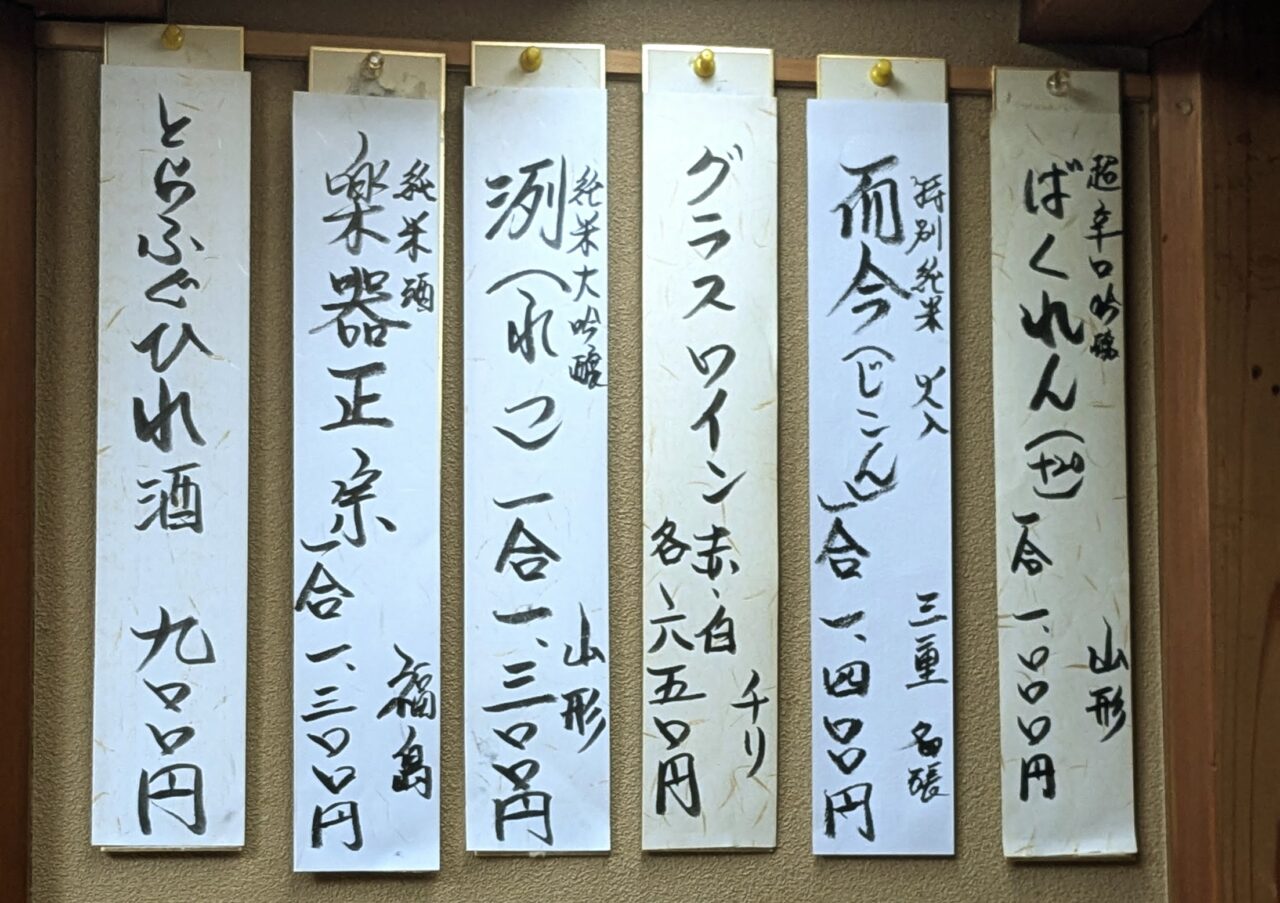 超辛口吟醸 山形
ばくれん(+20) 一合 一、〇〇〇円
特別純米 火入 三重 名張
而今(じこん) 一合 一、四〇〇円
グラスワイン 赤、白 チリ
各、六五〇円
純米大吟醸 山形
洌(れつ) 一合 一、三〇〇円
純米酒 福島
楽器正宗 一合 一、三〇〇円
とらふぐひれ酒 九〇〇円